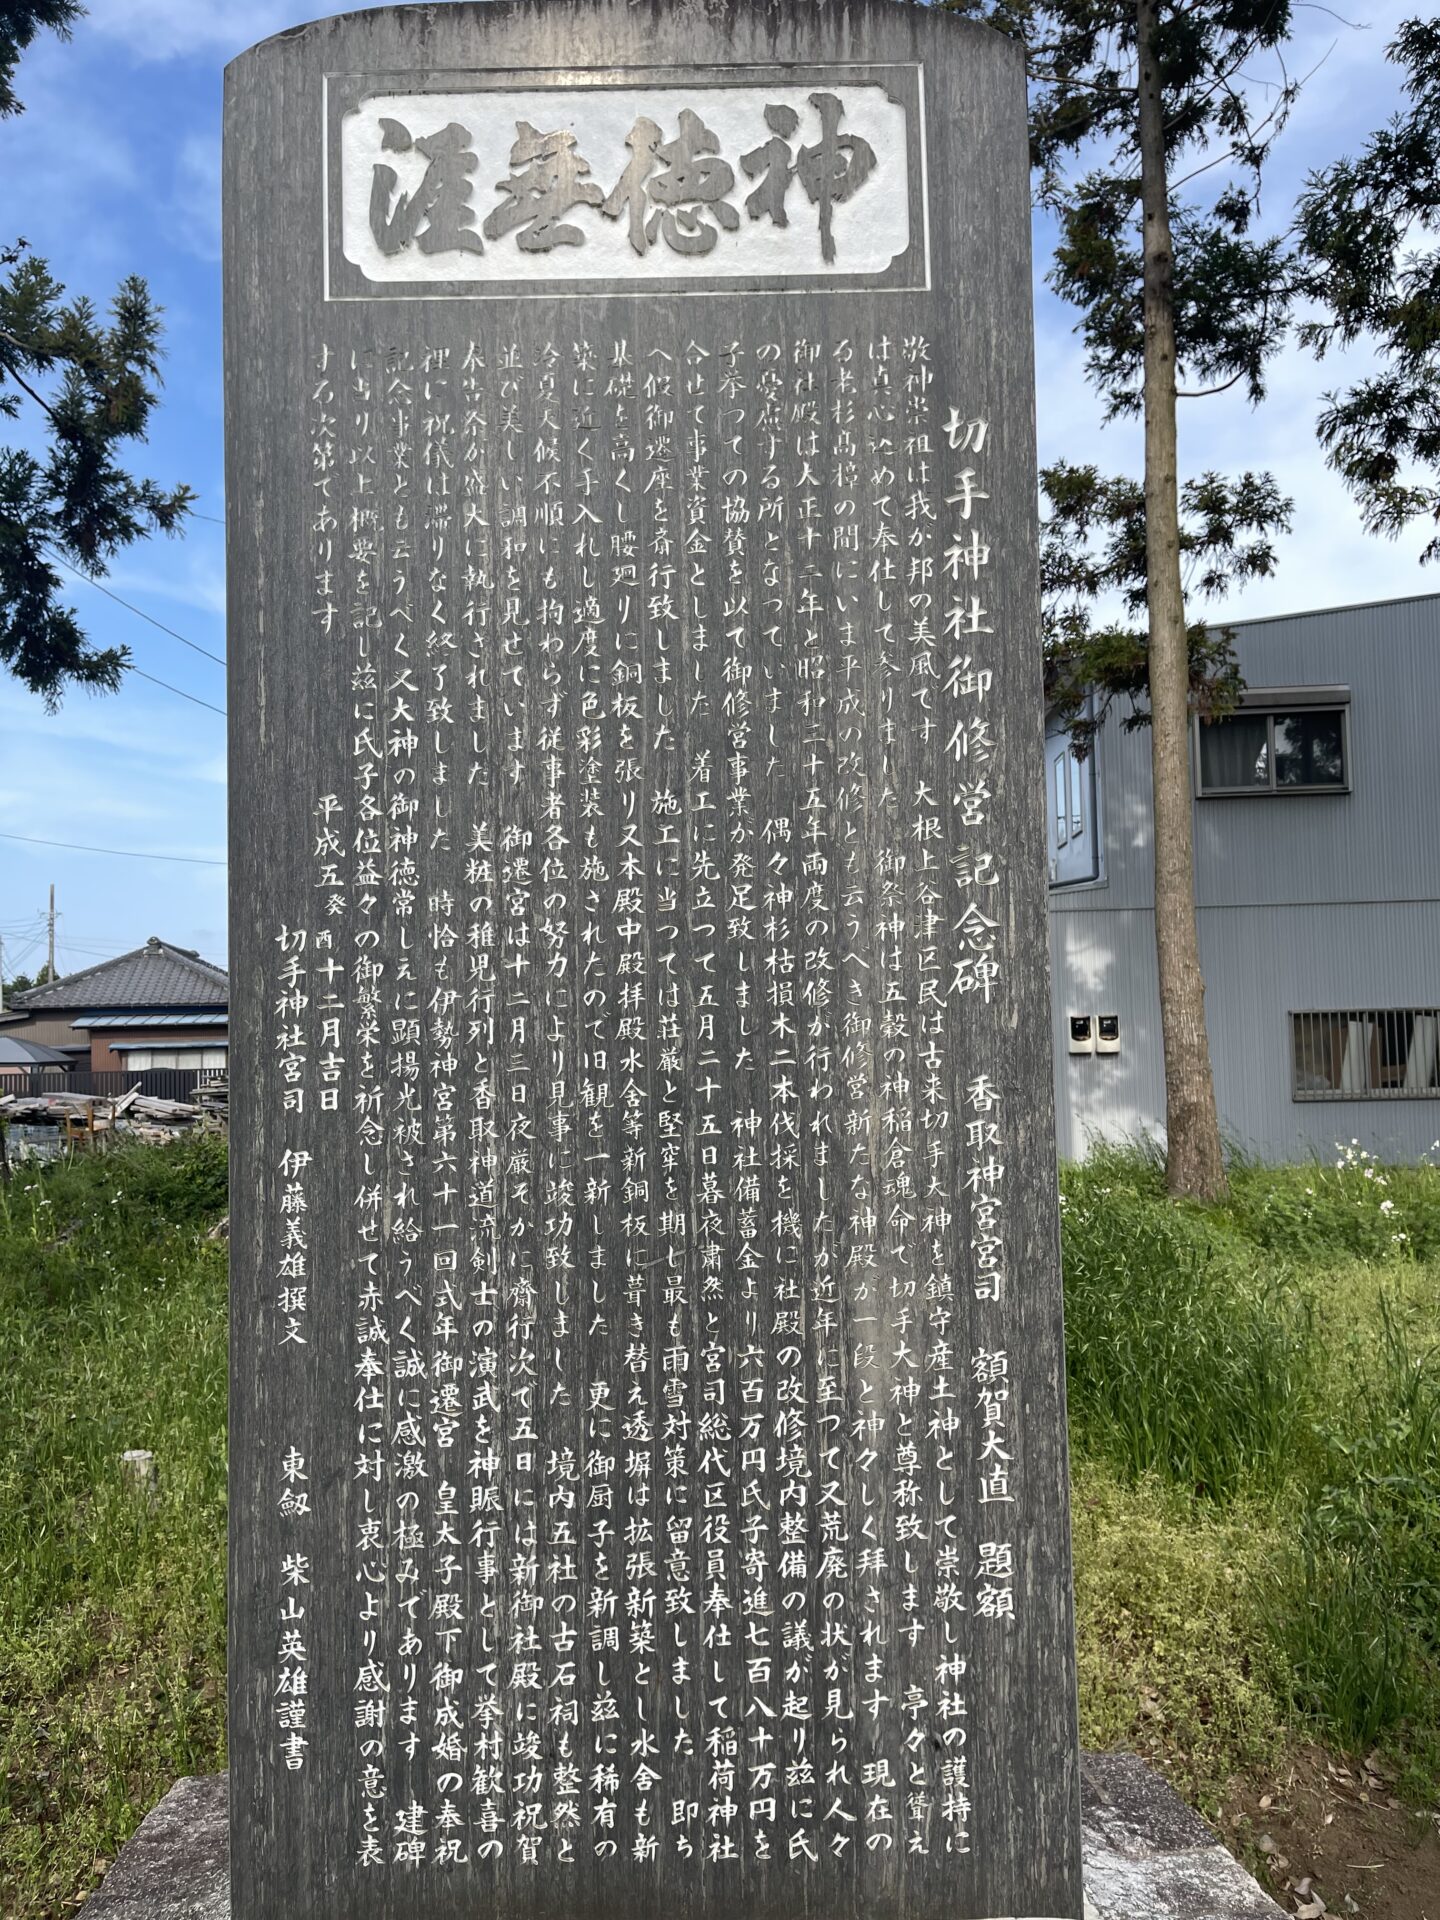 神徳無涯
切手神社御修営記念碑　香取神宮宮司　額賀大直　題額
敬神崇祖は我が邦の美風です　大根上谷津区民は古来切手大神を鎮守産土神として崇敬し神社の護持に
は真心込めて奉仕して参りました　御祭神は五穀の神稲倉魂命で切手大神と尊称致します　亭々と聳え
る老杉高樟の間にいま平成の改修とも云うべき御修営新たな神殿が一段と神々しく拝されます　現在の
御社殿は大正十二年と昭和三十五年両度の改修が行われましたが近年に至つて又荒廃の状が見られ人々
の憂慮する所となつていました　偶々神杉枯損木二本伐採を機に社殿の改修境内整備の議が起り玆に氏
子挙つての協賛を以て御修営事業が発足致しました　神社備蓄金より六百万円氏子寄進七百八十万円を
合せて事業資金としました　着工に先立つて五月二十五日暮夜粛然と宮司総代区役員奉仕して稲荷神社
へ假御遷座を斎行致しました　施工に当つては荘厳と堅牢を期し最も雨雪対策に留意致しました　即ち
基礎を高くし腰廻りに銅板を張り又本殿中殿拝殿水舎等新銅板に葺き替え透塀は拡張新築とし水舎も新
築に近く手入れし適度に色彩塗装も施されたので旧観を一新しました　更に御厨子を新調し玆に稀有の
冷夏天候不順にも拘わらず従事者各位の努力により見事に竣功致しました　境内五社の古石祠も整然と
並び美しい調和を見せています　御遷宮は十二月三日夜厳そかに齋行次で五日には新御社殿に竣功祝賀
奉告祭が盛大に執行されました　美粧の稚児行列と香取神道流剣士の演武を神賑行事として挙村歓喜の
裡に祝儀は滞りなく終了致しました　時恰も伊勢神宮第六十一回式年御遷宮　皇太子殿下御成婚の奉祝
記念事業とも云うべく又大神の御神徳常しえに顕揚光被され給うべく誠に感激の極みであります　建碑
に当り以上概要を記し玆に氏子各位益々の御繁栄を祈念し併せて赤誠奉仕に対し衷心より感謝の意を表
する次第であります
平成五癸酉十二月吉日
切手神社宮司　伊藤義雄撰文　東劔　柴山英雄謹書